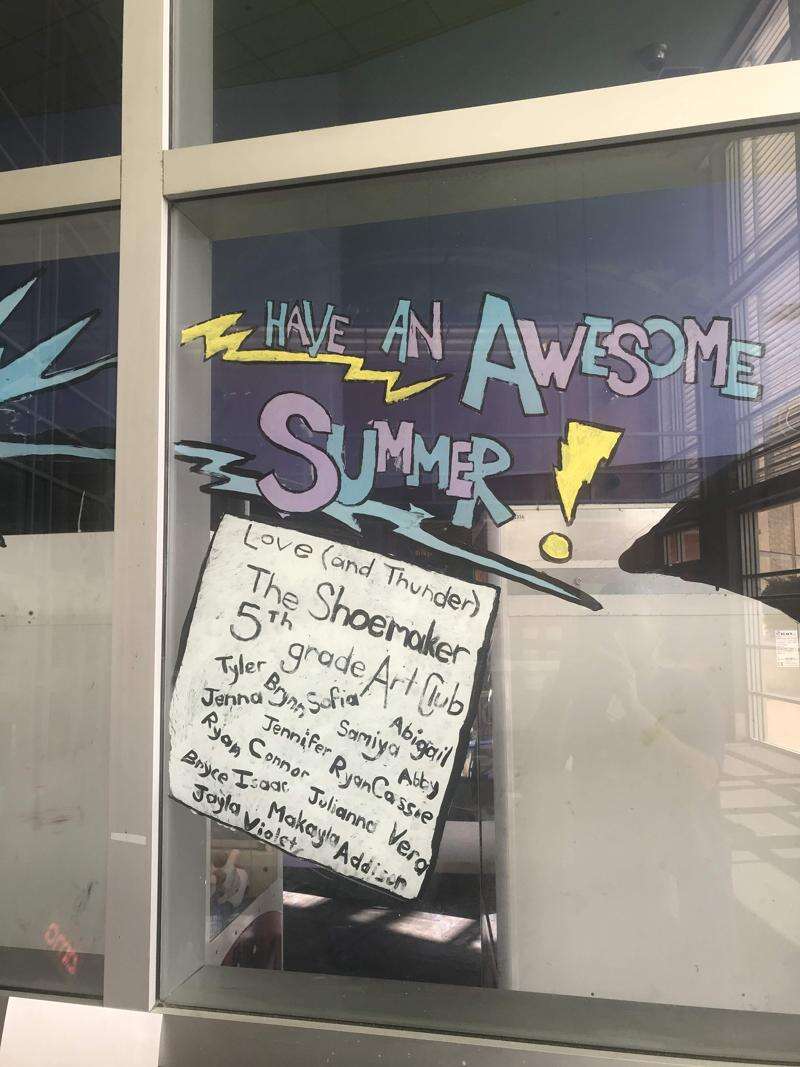 HAVE AN AWESOME
SUMMER!
Love (and Thunder)
The Shoemaker
5TH grade Art Club
Tyler Brynn Sofia Abigail
Jenna Jennifer Samiya Abby
Ryan Connor Ryan Cassie
Bryce Isaac Julianna Vera
Jayla Makayla Addison
Violet